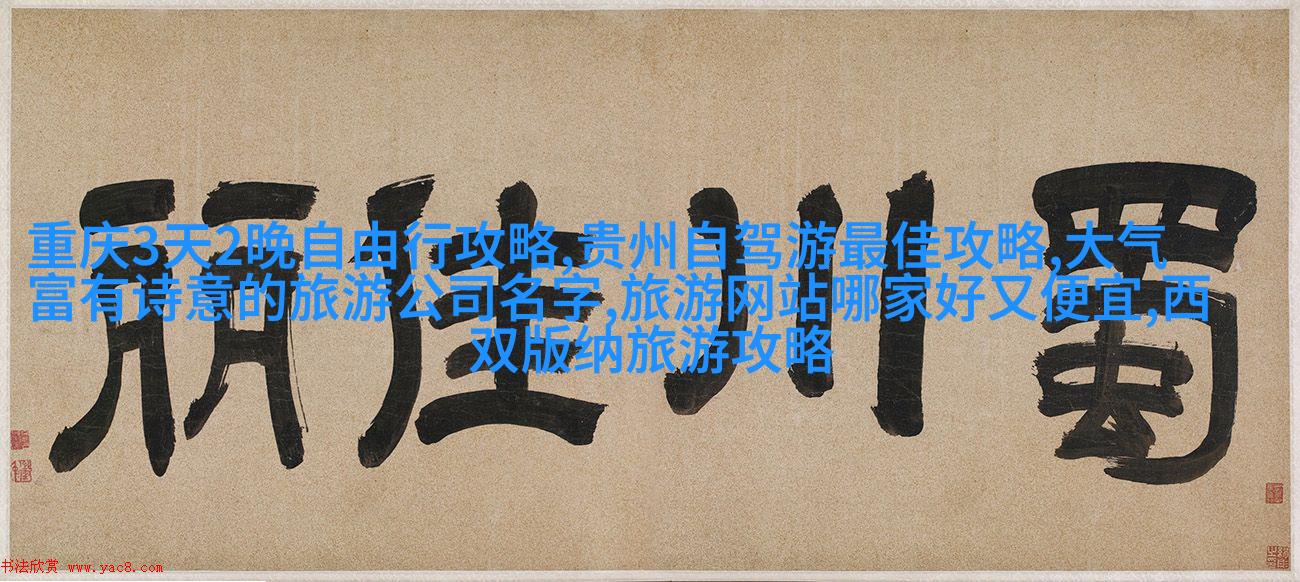 蜀川佳丽
重庆3天2晚自由行攻略,贵州自驾游最佳攻略,大气
富有诗意的旅游公司名字,旅游网站哪家好又便宜,西
双版纳旅游攻略
书法欣赏 www.yac8.com